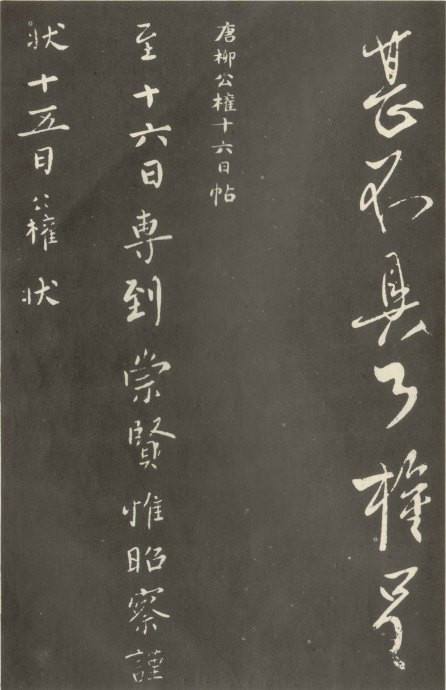 甚不具了權呈
唐柳公權十六日帖
至十六日專到崇賢惟昭察謹
狀十五日公權狀